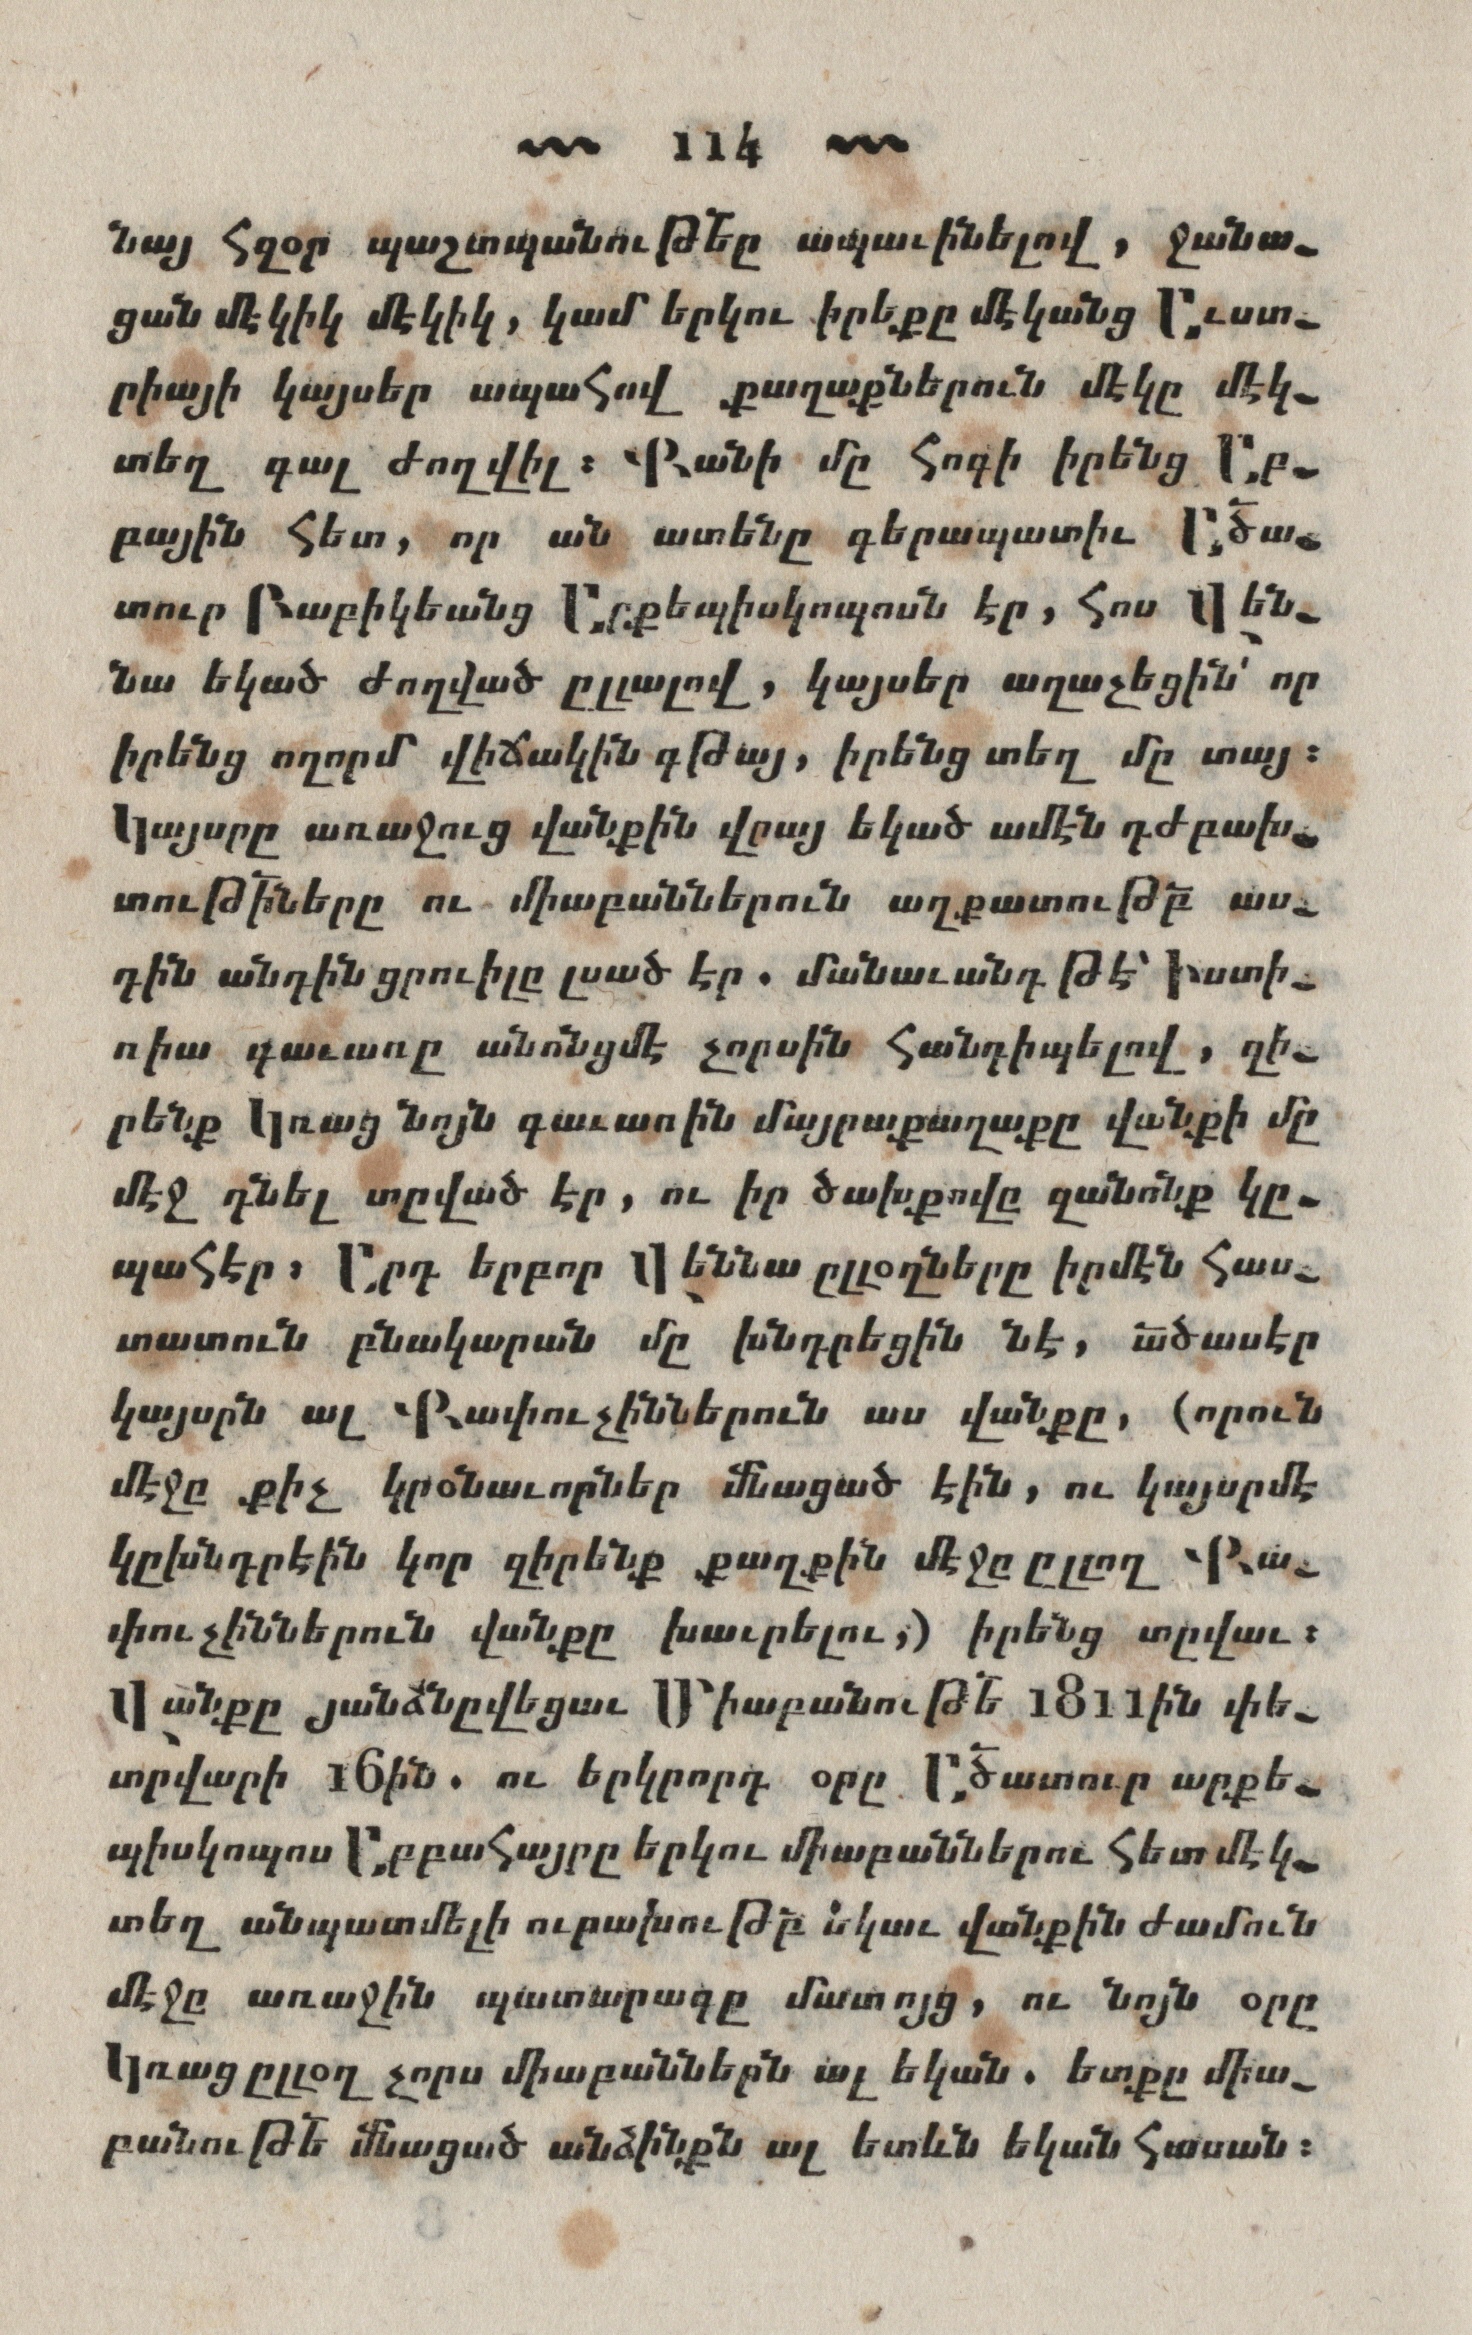 114
նայ հզօր պաշտպանուԹե̅ը ապաւինելով, ջանա֊
ցան մէկիկ մէկիկ, կամ երկու իրեքը մէկանց Աւստ֊
րիայի կայսեր ապահով քաղաքներուն մէկը մէկ֊
տեղ գալ ժողվիլ։ Քանի մը հոգի իրենց Աբ֊
բային հետ, որ ան ատենը գերապատիւ Ած̅ա֊
տուր Բաբիկեանց Արքեպիսկոպոսն էր, հոս Վեն֊
նա եկած ժողված ըլլալով, կայսեր աղաչեցին՝ որ
իրենց ողորմ վիճակին գթայ, իրենց տեղ մը տայ։
Կայսրը առաջուց վանքին վրայ եկած ամէն դժբախ֊
տուԹի̅ները ու միաբաններուն աղքատուԹբ̅ աս֊
դին անդին ցրուիլը լսած էր. մանաւանդ թէ՝ Իստի֊
ռիա գաւառը անոնցմէ չորսին հանդիպելով, զի֊
րենք Կռաց նոյն գաւառին մայրաքաղաքը վանքի մը
մէջ դնել տըված էր, ու իր ծախքովը զանոնք կը֊
պահէր։ Արդ երբոր Վեննա ըլլօղները իրմէն հաս֊
տատուն բնակարան մը խնդրեցին նէ, ա̅ծասէր
կայսրն ալ Քափուչիններուն աս վանքը, (որուն
մէջը քիչ կրօնաւորներ մ̅նացած էին, ու կայսրմէ
կըխնդրէին կոր զիրենք քաղքին մէջը ըլլող Քա֊
փուչիններուն վանքը խաւրելու,) իրենց տըվաւ։
Վանքը յանձնըվեցաւ ՄիաբանուԹե̅ 1811ին փե֊
տրվարի 16ին. ու երկրորդ օրը Ած̅ատուր արքե֊
պիսկոպոս Աբբահայրը երկու միաբաններու հետ մէկ֊
տեղ անպատմելի ուրախուԹբ̅ եկաւ վանքին ժամուն
մէջը առաջին պատարագը մատոյց, ու նոյն օրը
Կռաց ըլլօղ չորս միաբաններն ալ եկան. ետքը միա֊
բանուԹե̅ մ̅նացած անձինքն ալ ետևն եկան հասան։